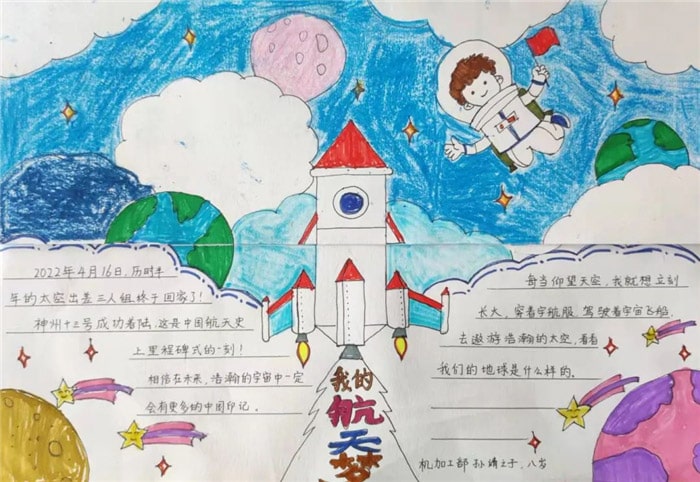 2022年4月16日,历时半
年的太空出差三人组终于回家了!
神州十三号成功着陆,这是中国航天史
上里程碑式的一刻!
相信在未来,浩瀚的宇宙中一定
会有更多的中国印记。
我的
航
天
梦
每当仰望天空,我就想立刻
长大,穿着宇航服,驾驶着宇宙飞船,
去遨游浩瀚的太空,看看
我们的地球是什么样的。
机加工部 孙 八岁